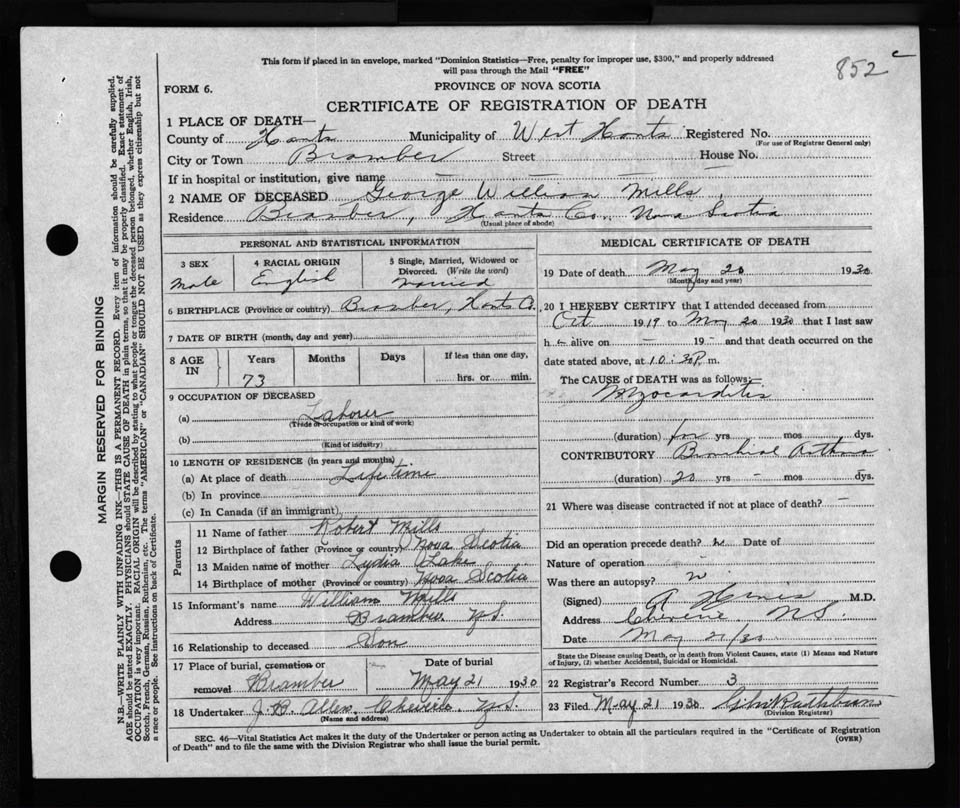 852 c
This form if placed in an envelope, marked "Dominion Statistics—Free, penalty for improper use, $300," and properly addressed
will pass through the Mail "FREE"
FORM 6.
PROVINCE OF NOVA SCOTIA
CERTIFICATE OF REGISTRATION OF DEATH
1 PLACE OF DEATH—
County of Hants Municipality of West Hants Registered No.
(For use of Registrar General only)
City or Town Bramber Street House No.
If in hospital or institution, give name — — —
2 NAME OF DECEASED George William Mills
Residence Bramber, Hants Co., Nova Scotia
(Usual place of abode)
PERSONAL AND STATISTICAL INFORMATION
3 SEX
Male
4 RACIAL ORIGIN
English
5 Single, Married, Widowed or
Divorced. (Write the word)
Married
6 BIRTHPLACE (Province or country) Bramber, Hants Co.
7 DATE OF BIRTH (month, day and year)
8 AGE IN Years Months Days If less than one day,
73 hrs. or min.
9 OCCUPATION OF DECEASED
(a) Laborer
(Trade or occupation or kind of work)
(b)
(Kind of industry)
10 LENGTH OF RESIDENCE (in years and months)
(a) At place of death Lifetime
(b) In province
(c) In Canada (if an immigrant)
Parents
11 Name of father Robert Mills
12 Birthplace of father (Province or country) Nova Scotia
13 Maiden name of mother Lydia Lake
14 Birthplace of mother (Province or country) Nova Scotia
15 Informant's name William Mills
Address Bramber N.S.
16 Relationship to deceased Son
17 Place of burial, cremation or
removal Bramber
Date of burial
May 21 1930
18 Undertaker J. B. Allen, Cheverie N.S.
(Name and address)
MEDICAL CERTIFICATE OF DEATH
19 Date of death May 20 1930
(Month, day and year)
20 I HEREBY CERTIFY that I attended deceased from
Oct 1919 to May 20 1930 that I last saw
h alive on — 19 — and that death occurred on the
date stated above, at 10:30 P. m.
The CAUSE of DEATH was as follows:
Myocarditis
(duration) yrs — mos dys.
CONTRIBUTORY Bronchial Asthma
(duration) 20 yrs — mos — dys.
21 Where was disease contracted if not at place of death? —
Did an operation precede death? Date of
Nature of operation
Was there an autopsy?
(Signed) M.D.
Address Cheverie N S
Date May 21/30
State the Disease causing Death, or in death from Violent Causes, state (1) Means and Nature
of Injury, (2) whether Accidental, Suicidal or Homicidal.
22 Registrar's Record Number 3
23 Filed May 21 1930
(Division Registrar)
SEC. 46—Vital Statistics Act makes it the duty of the Undertaker or person acting as Undertaker to obtain all the particulars required in the "Certificate of Registration
of Death" and to file the same with the Division Registrar who shall issue the burial permit.
(OVER)
MARGIN RESERVED FOR BINDING
N.B.—WRITE PLAINLY WITH UNFADING INK—THIS IS A PERMANENT RECORD. Every item of information should be carefully supplied.
AGE should be stated EXACTLY. PHYSICIANS should STATE CAUSE OF DEATH in plain terms, so that it may be properly classified. Exact statement of
OCCUPATION is very important. RACIAL ORIGIN will be described by stating to what people or tongue the deceased person belonged, whether English, Irish,
Scotch, French, German, Russian, Ruthenian, etc. The terms "AMERICAN" or "CANADIAN" SHOULD NOT BE USED as they express citizenship but not
a race or people. See instructions on back of Certificate.